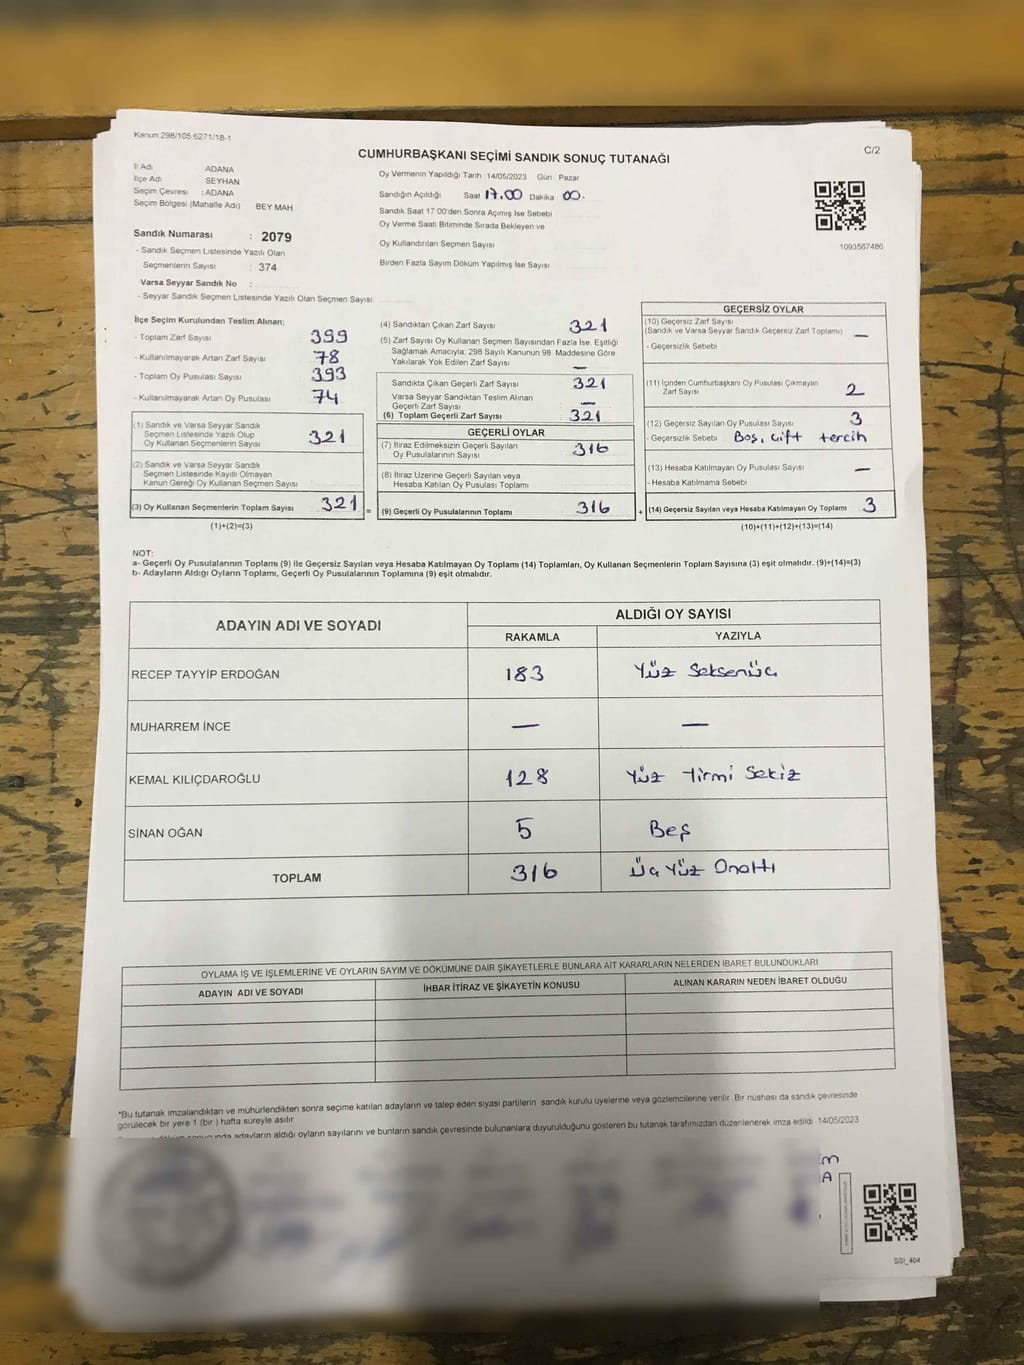 Kanun 298/105.6271/18-1
C/2
CUMHURBAŞKANI SEÇİMİ SANDIK SONUÇ TUTANAĞI
İl Adı ADANA
İlçe Adı SEYHAN
Seçim Çevresi : ADANA
Seçim Bölgesi (Mahalle Adı) BEY MAH
Sandık Numarası : 2079
- Sandık Seçmen Listesinde Yazılı Olan
Seçmenlerin Sayısı : 374
Varsa Seyyar Sandık No :
- Seyyar Sandık Seçmen Listesinde Yazılı Olan Seçmen Sayısı:
Oy Vermenin Yapıldığı Tarih 14/05/2023 Gün Pazar
Sandığın Açıldığı Saat 17.00 Dakika 00.
Sandık Saat 17.00'den Sonra Açımış İse Sebebi
Oy Verme Saati Bitiminde Sırada Bekleyen ve
Oy Kullandırılan Seçmen Sayısı
Birden Fazla Sayım Döküm Yapılmış İse Sayısı
1093567486
İlçe Seçim Kurulundan Teslim Alınan;
- Toplam Zarf Sayısı 399
- Kullanılmayarak Artan Zarf Sayısı 78
- Toplam Oy Pusulası Sayısı 393
- Kullanılmayarak Artan Oy Pusulası 74
(1) Sandık ve Varsa Seyyar Sandık
Seçmen Listesinde Yazılı Olup
Oy Kullanan Seçmenlerin Sayısı 321
(2) Sandık ve Varsa Seyyar Sandık
Seçmen Listesinde Kayıtlı Olmayan
Kanun Gereği Oy Kullanan Seçmen Sayısı
(3) Oy Kullanan Seçmenlerin Toplam Sayısı 321 =
(1)+(2)=(3)
(4) Sandıktan Çıkan Zarf Sayısı 321
(5) Zarf Sayısı Oy Kullanan Seçmen Sayısından Fazla İse, Eşitliği
Sağlamak Amacıyla; 298 Sayılı Kanunun 98 Maddesine Göre
Yakılarak Yok Edilen Zarf Sayısı —
Sandıkta Çıkan Geçerli Zarf Sayısı 321
Varsa Seyyar Sandıktan Teslim Alınan
Geçerli Zarf Sayısı —
(6) Toplam Geçerli Zarf Sayısı 321
GEÇERLİ OYLAR
(7) İtiraz Edilmeksizin Geçerli Sayılan
Oy Pusulalarının Sayısı 316
(8) İtiraz Üzerine Geçerli Sayılan veya
Hesaba Katılan Oy Pusulası Toplamı
(9) Geçerli Oy Pusulalarının Toplamı 316 +
GEÇERSİZ OYLAR
(10) Geçersiz Zarf Sayısı
(Sandık ve Varsa Seyyar Sandık Geçersiz Zarf Toplamı) —
- Geçersizlik Sebebi
(11) İçinden Cumhurbaşkanı Oy Pusulası Çıkmayan
Zarf Sayısı 2
(12) Geçersiz Sayılan Oy Pusulası Sayısı 3
- Geçersizlik Sebebi Boş, çift tercih
(13) Hesaba Katılmayan Oy Pusulası Sayısı —
- Hesaba Katılmama Sebebi
(14) Geçersiz Sayılan veya Hesaba Katılmayan Oy Toplamı 3
(10)+(11)+(12)+(13)=(14)
NOT:
a- Geçerli Oy Pusulalarının Toplamı (9) ile Geçersiz Sayılan veya Hesaba Katılmayan Oy Toplamı (14) Toplamları, Oy Kullanan Seçmenlerin Toplam Sayısına (3) eşit olmalıdır. (9)+(14)=(3)
b- Adayların Aldığı Oyların Toplamı, Geçerli Oy Pusulalarının Toplamına (9) eşit olmalıdır.
ADAYIN ADI VE SOYADI ALDIĞI OY SAYISI
RAKAMLA YAZIYLA
RECEP TAYYİP ERDOĞAN 183 Yüz Seksenüç
MUHARREM İNCE — —
KEMAL KILIÇDAROĞLU 128 Yüz Yirmi Sekiz
SİNAN OĞAN 5 Beş
TOPLAM 316 Üç Yüz Onaltı
OYLAMA İŞ VE İŞLEMLERİNE VE OYLARIN SAYIM VE DÖKÜMÜNE DAİR ŞİKAYETLERLE BUNLARA AİT KARARLARIN NELERDEN İBARET BULUNDUKLARI
ADAYIN ADI VE SOYADI İHBAR İTİRAZ VE ŞİKAYETİN KONUSU ALINAN KARARIN NEDEN İBARET OLDUĞU
*Bu tutanak imzalandıktan ve mühürlendikten sonra seçime katılan adayların ve talep eden siyasi partilerin sandık kurulu üyelerine veya gözlemcilerine verilir. Bir nüshası da sandık çevresinde
görülecek bir yere 1 (bir ) hafta süreyle asılır.
adayların aldığı oyların sayılarını ve bunların sandık çevresinde bulunanlara duyurulduğunu gösteren bu tutanak tarafımızdan düzenlenerek imza edildi. 14/05/2023
SSI_404